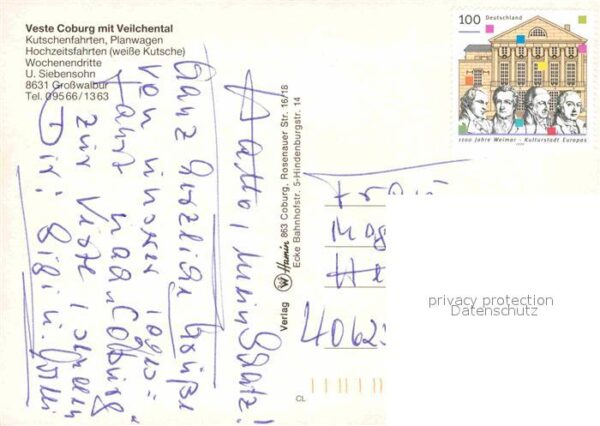 Veste Coburg mit Veilchental
Kutschenfahrten, Planwagen
Hochzeitsfahrten (weiße Kutsche)
Wochenendritte
U. Siebensohn
8631 Großwalbur
Tel. 09566/1363
Hallo, mein Schatz!
Ganz herzliche Grüße
von unserer Tages=
fahrt nach Coburg
zur Veste
Dir! Gigi u.
Verlag Hamin 863 Coburg, Rosenauer Str. 16/18
Ecke Bahnhofstr. 5-Hindenburgstr. 14
100 Deutschland
1100 Jahre Weimar - Kulturstadt Europas
Frau
Mag
He
4062
CL
privacy protection
Datenschutz